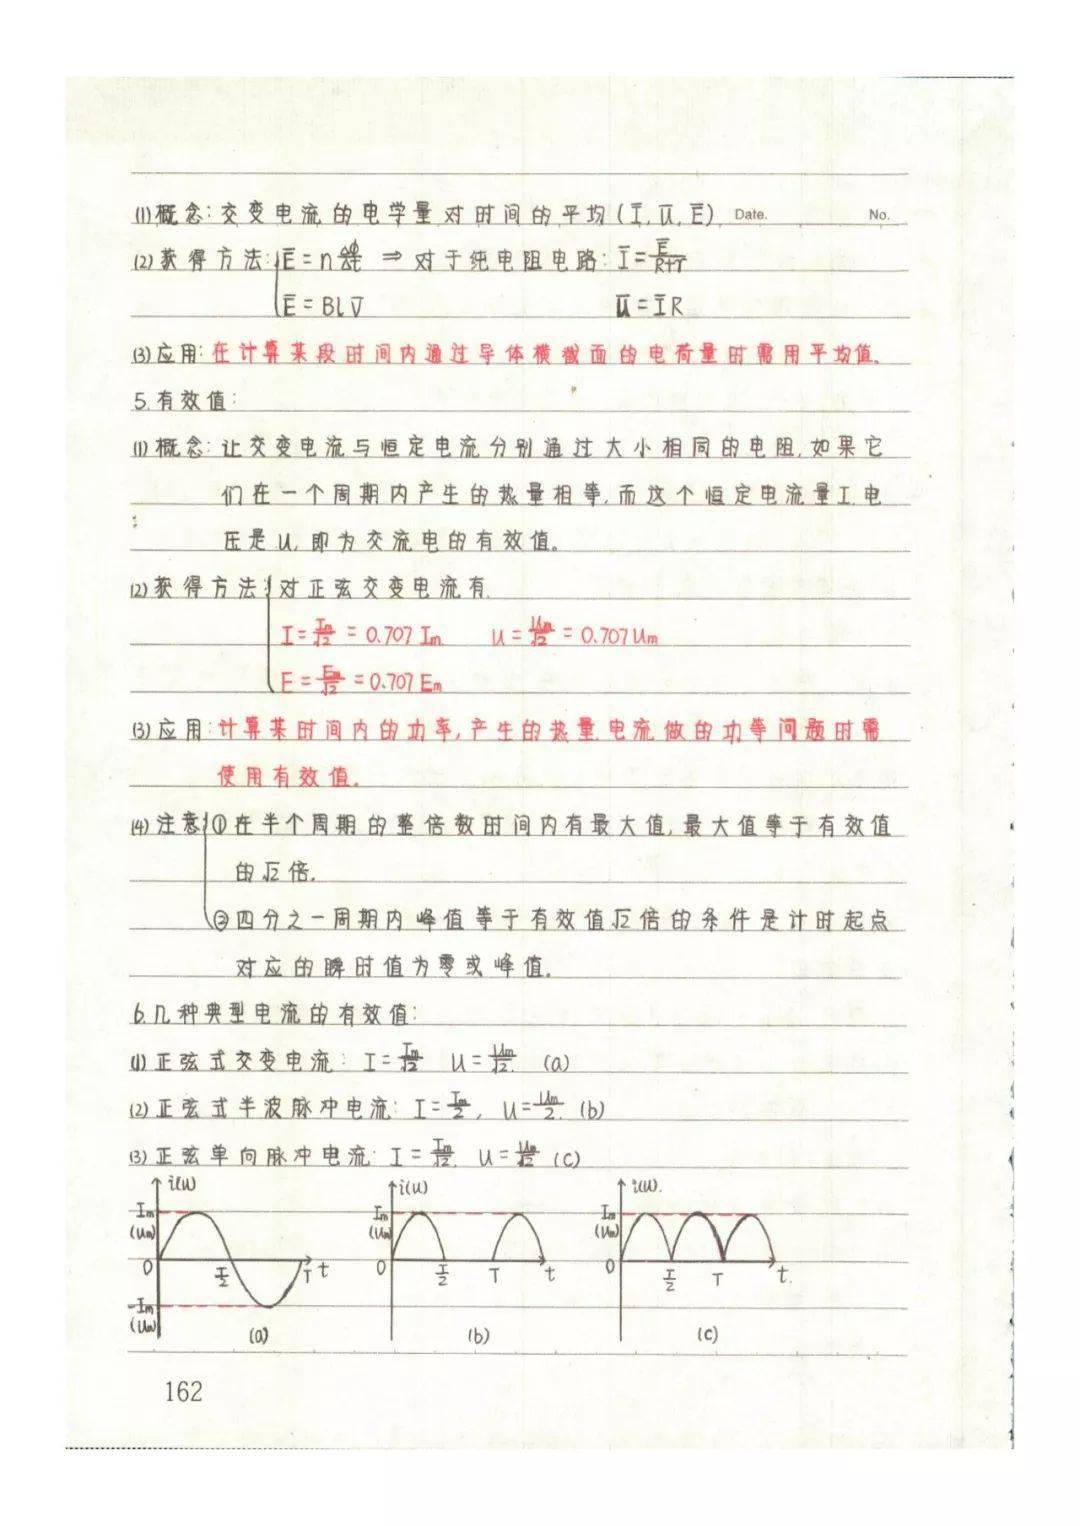 (1)概念:交变电流的电学量对时间的平均(I̅,U̅,E̅) Date. No.
(2)获得方法:E̅=nΔφ/Δt ⇒对于纯电阻电路:I̅=E̅/(R+r)
E̅=BLV̅ U̅=I̅R
(3)应用:在计算某段时间内通过导体横截面的电荷量时需用平均值。
5.有效值:
(1)概念:让交变电流与恒定电流分别通过大小相同的电阻,如果它
们在一个周期内产生的热量相等,而这个恒定电流量I,电
压是U,即为交流电的有效值。
(2)获得方法:对正弦交变电流有.
I=Im/√2=0.707Im U=Um/√2=0.707Um
E=Em/√2=0.707Em
(3)应用:计算某时间内的功率,产生的热量,电流做的功等问题时需
使用有效值。
(4)注意:①在半个周期的整倍数时间内有最大值,最大值等于有效值
的√2倍.
②四分之一周期内峰值等于有效值√2倍的条件是计时起点
对应的瞬时值为零或峰值.
6.几种典型电流的有效值:
(1)正弦式交变电流:I=Im/√2 U=Um/√2. (a)
(2)正弦式半波脉冲电流:I=Im/2, U=Um/2. (b)
(3)正弦单向脉冲电流:I=Im/√2. U=Um/√2 (c)
i(u) i(u) i(u).
Im Im Im
(Um) (Um) (Um)
0 T/2 T t 0 T/2 T t 0 T/2 T t.
-Im
(Um) (a) (b) (c)
162